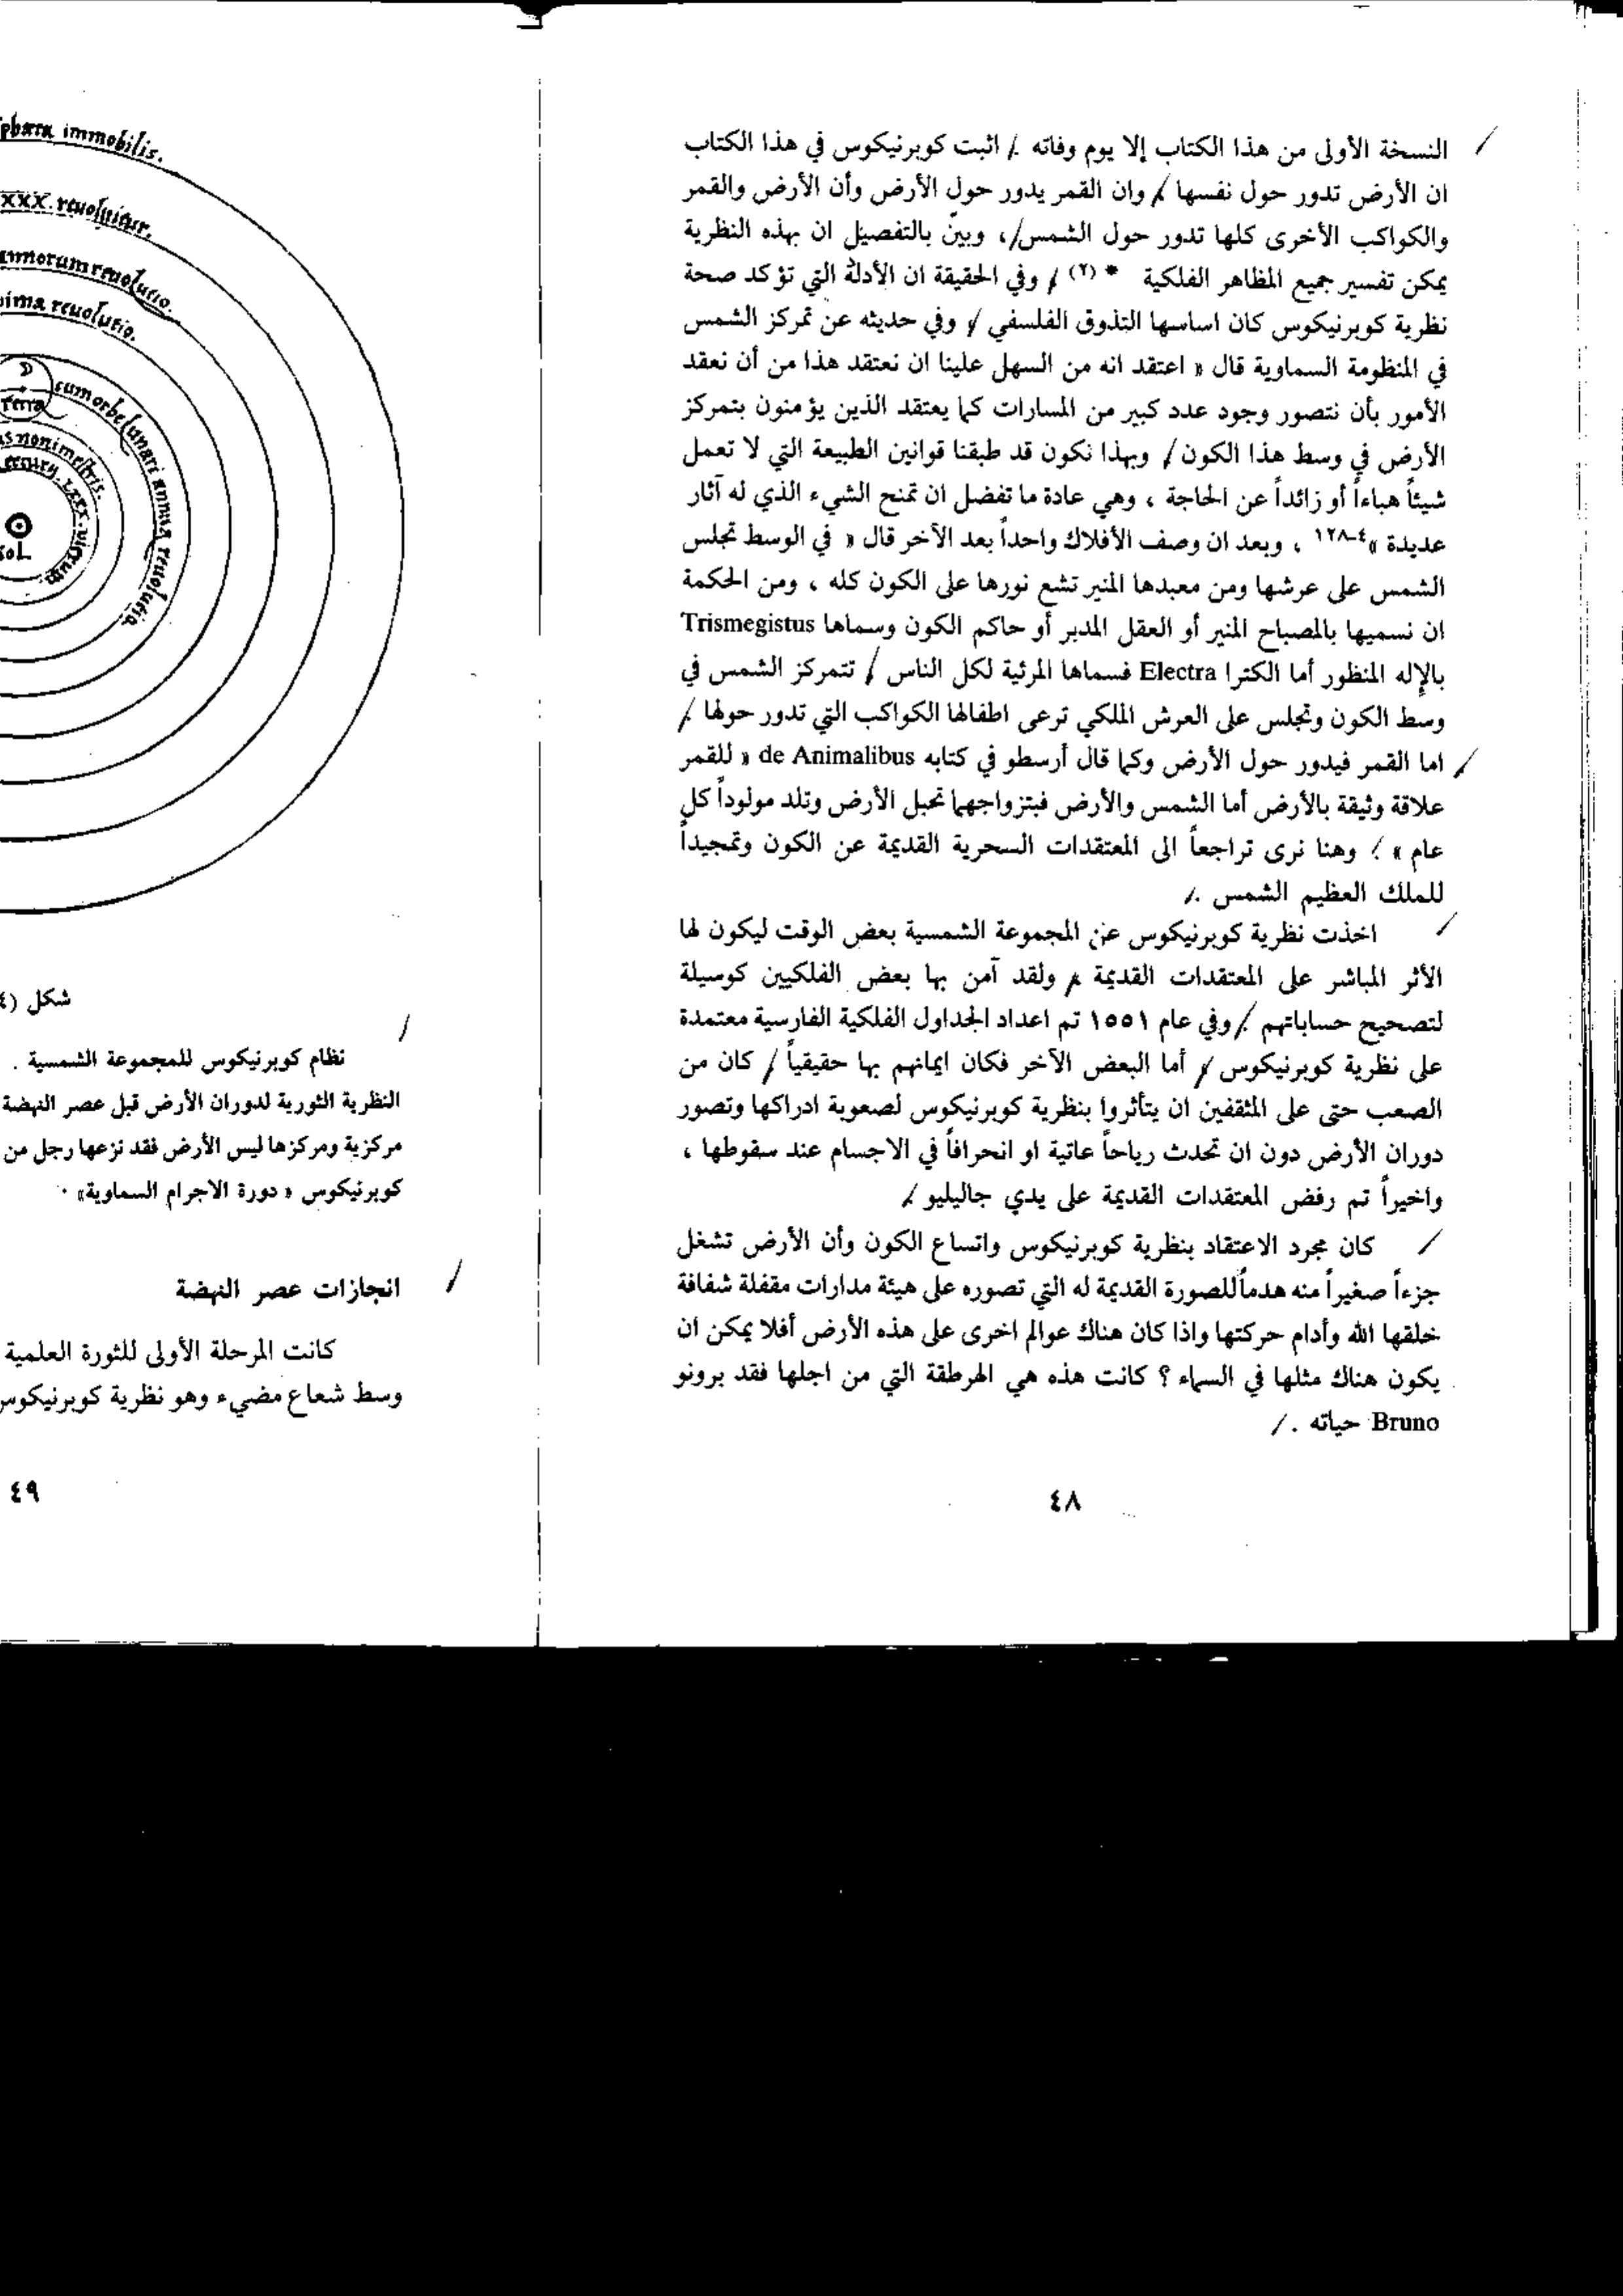 النسخة الأولى من هذا الكتاب إلا يوم وفاته . اثبت كوبرنيكوس في هذا الكتاب
ان الأرض تدور حول نفسها وان القمر يدور حول الأرض وأن الأرض والقمر
والكواكب الأخرى كلها تدور حول الشمس ، وبيّن بالتفصيل ان بهذه النظرية
يمكن تفسير جميع المظاهر الفلكية * (٢) وفي الحقيقة ان الأدلة التي تؤكد صحة
نظرية كوبرنيكوس كان اساسها التذوق الفلسفي وفي حديثه عن تمركز الشمس
في المنظومة السماوية قال « اعتقد انه من السهل علينا ان نعتقد هذا من أن نعقد
الأمور بأن نتصور وجود عدد كبير من المسارات كما يعتقد الذين يؤمنون بتمركز
الأرض في وسط هذا الكون وبهذا نكون قد طبقنا قوانين الطبيعة التي لا تعمل
شيئاً هباءاً أو زائداً عن الحاجة ، وهي عادة ما تفضل ان تمنح الشيء الذي له آثار
عديدة »٤-١٢٨ ، وبعد ان وصف الأفلاك واحداً بعد الآخر قال « في الوسط تجلس
الشمس على عرشها ومن معبدها المنير تشع نورها على الكون كله ، ومن الحكمة
ان نسميها بالمصباح المنير أو العقل المدبر أو حاكم الكون وسماها Trismegistus
بالإله المنظور أما الكترا Electra فسماها المرئية لكل الناس تتمركز الشمس في
وسط الكون وتجلس على العرش الملكي ترعى اطفالها الكواكب التي تدور حولها .
اما القمر فيدور حول الأرض وكما قال أرسطو في كتابه de Animalibus « للقمر
علاقة وثيقة بالأرض أما الشمس والأرض فبتزواجهما تحبل الأرض وتلد مولوداً كل
عام » . وهنا نرى تراجعاً الى المعتقدات السحرية القديمة عن الكون وتمجيداً
للملك العظيم الشمس .
اخذت نظرية كوبرنيكوس عن المجموعة الشمسية بعض الوقت ليكون لها
الأثر المباشر على المعتقدات القديمة ولقد آمن بها بعض الفلكيين كوسيلة
لتصحيح حساباتهم . وفي عام ١٥٥١ تم اعداد الجداول الفلكية الفارسية معتمدة
على نظرية كوبرنيكوس أما البعض الآخر فكان ايمانهم بها حقيقياً كان من
الصعب حتى على المثقفين ان يتأثروا بنظرية كوبرنيكوس لصعوبة ادراكها وتصور
دوران الأرض دون ان تحدث رياحاً عاتية او انحرافاً في الاجسام عند سقوطها ،
واخيراً تم رفض المعتقدات القديمة على يدي جاليليو
كان مجرد الاعتقاد بنظرية كوبرنيكوس واتساع الكون وأن الأرض تشغل
جزءاً صغيراً منه هدماً للصورة القديمة له التي تصوره على هيئة مدارات مقفلة شفافة
خلقها الله وأدام حركتها واذا كان هناك عوالم اخرى على هذه الأرض أفلا يمكن ان
يكون هناك مثلها في السماء ؟ كانت هذه هي الهرطقة التي من اجلها فقد برونو
Bruno حياته .
٤٨
immobilis.
XXX. reuoluitur.
reuolutio.
reuolutio.
terra
cumorbe lunari annua reuolutio.
nonimestris.
Sol
شكل (٤
نظام كوبرنيكوس للمجموعة الشمسية .
النظرية الثورية لدوران الأرض قبل عصر النهضة
مركزية ومركزها ليس الأرض فقد نزعها رجل من
كوبرنيكوس « دورة الاجرام السماوية» .
انجازات عصر النهضة
كانت المرحلة الأولى للثورة العلمية
وسط شعاع مضيء وهو نظرية كوبرنيكوس
٤٩